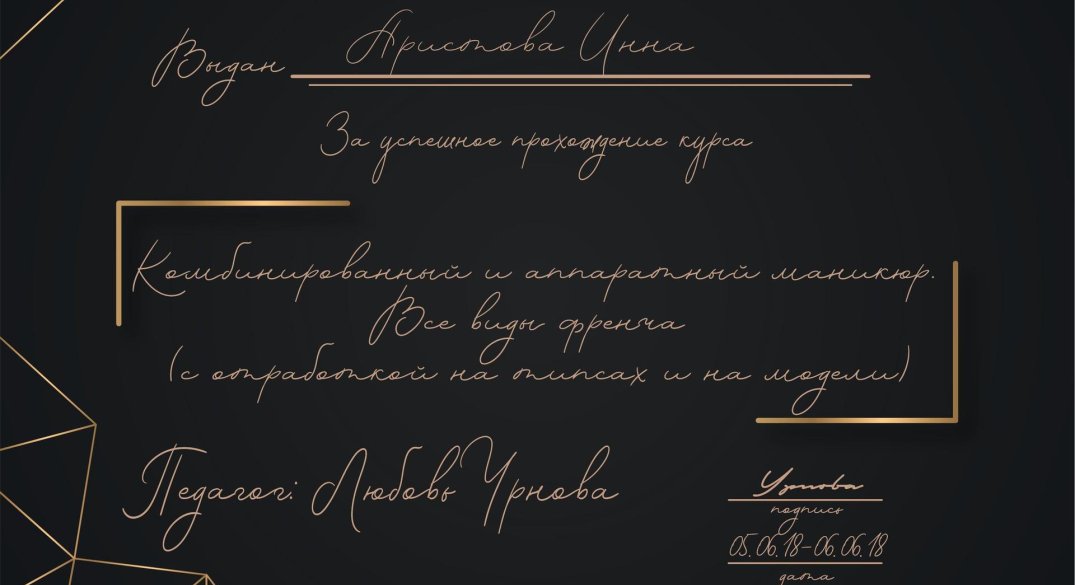 Выдан Аристова Инна
За успешное прохождение курса
Комбинированный и аппаратный маникюр.
Все виды френча
(с отработкой на типсах и на модели)
Педагог: Любовь Урнова
Урнова
подпись
05.06.18-06.06.18
дата